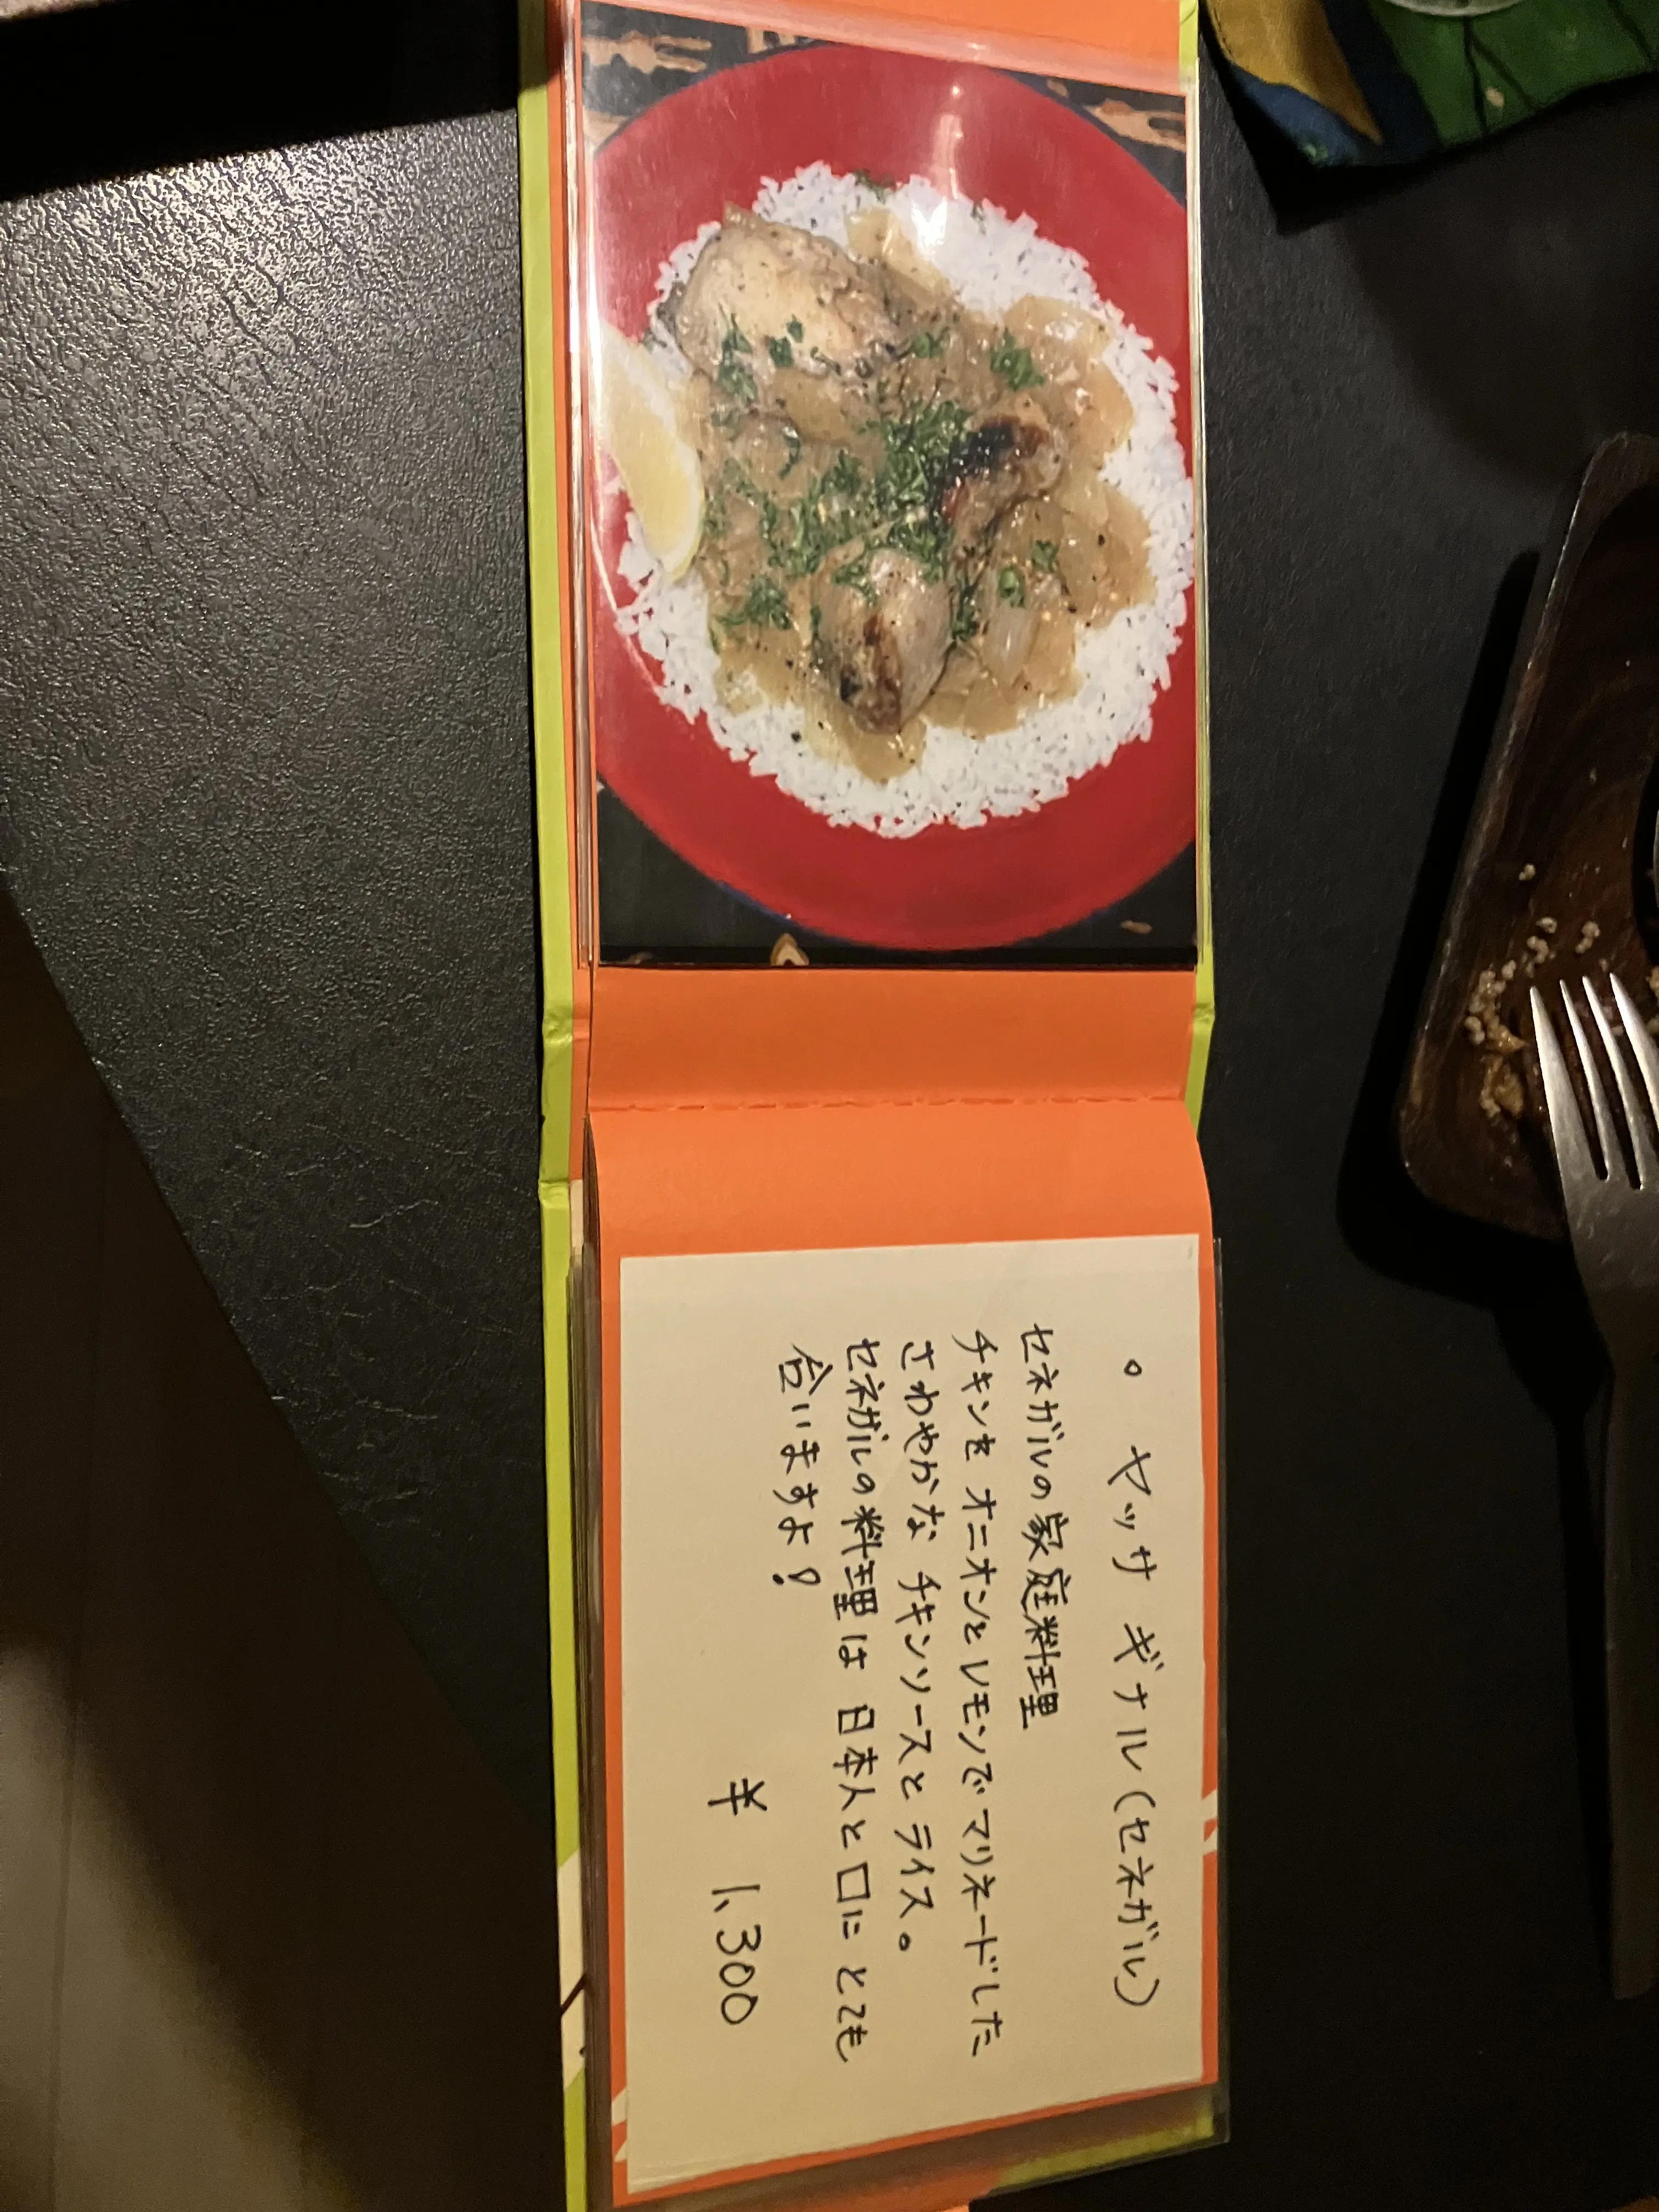 。ヤッサ ギナル(セネガル)
セネガルの家庭料理
チキンを オニオンとレモンでマリネードした
さわやかな チキンソースと ライス。
セネガルの料理は 日本人と口に とても
合いますよ!
¥ 1,300